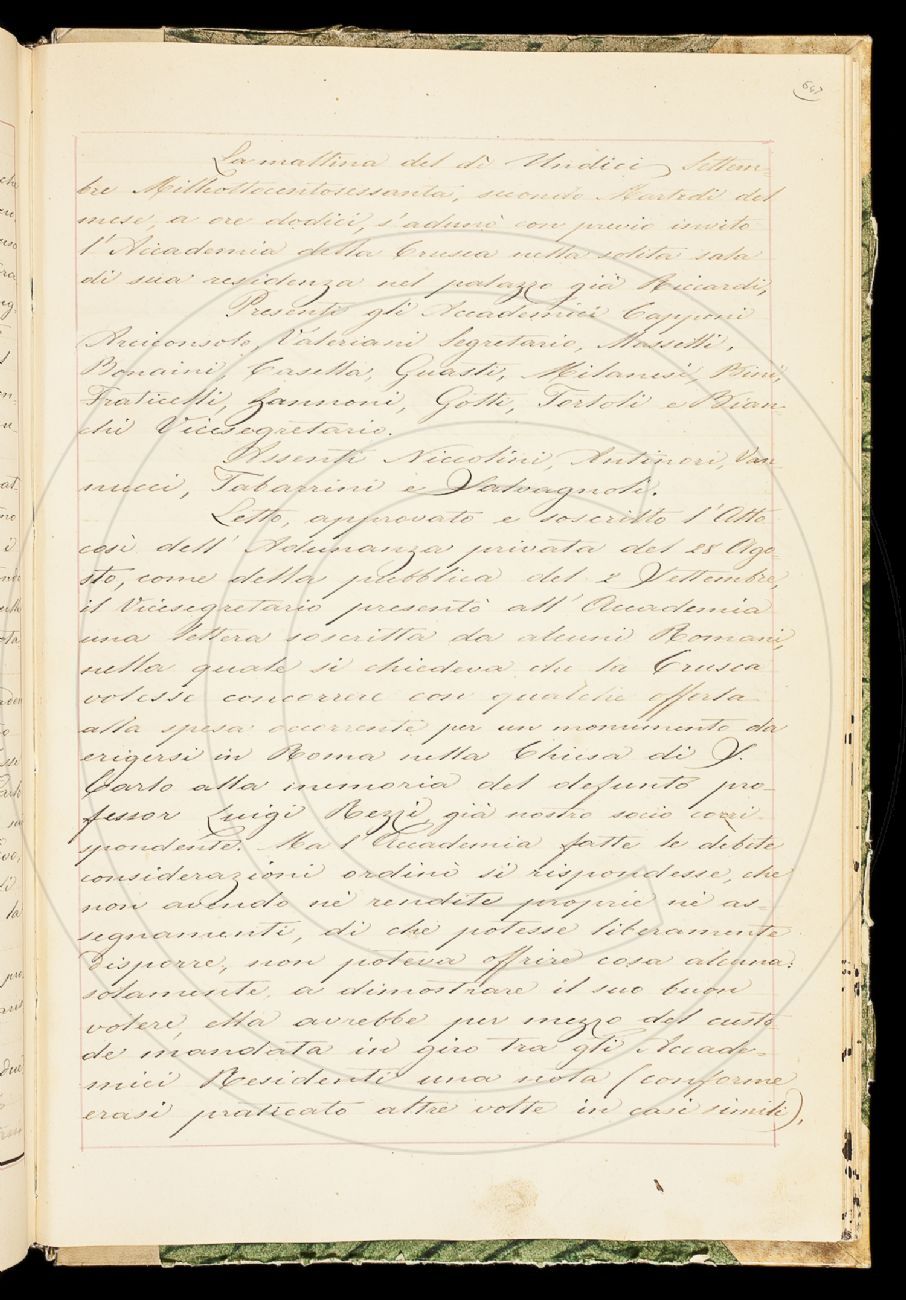 La mattina del dì Undici Settem-
bre Milleottocentosessanta, secondo Martedì del
mese, a ore dodici, s'adunò con previo invito
l'Accademia della Crusca nella solita sala
di sua residenza nel palazzo già Riccardi,
Presenti gli Accademici Capponi
Arciconsolo, Valeriani Segretario, Masselli,
Bonaini, Casella, Guasti, Milanesi, Bini,
Fraticelli, Zannoni, Gotti, Tortoli e Bian-
chi Vicesegretario.
Assenti Niccolini, Antinori, Van-
nucci, Tabarrini e Salvagnoli.
Letto, approvato e soscritto l'Atto
così dell'Adunanza privata del 28 Ago-
sto, come della pubblica del 2 Settembre,
il Vicesegretario presentò all'Accademia
una lettera soscritta da alcuni Romani,
nella quale si chiedeva che la Crusca
volesse concorrere con qualche offerta
alla spesa occorrente per un monumento da
erigersi in Roma nella Chiesa di S.
Carlo alla memoria del defunto pro-
fessor Luigi Rezzi, già nostro socio corri-
spondente. Ma l'Accademia fatte le debite
considerazioni ordinò si rispondesse, che
non avendo nè rendite proprie nè as-
segnamenti, di che potesse liberamente
disporre, non poteva offrire cosa alcuna:
solamente, a dimostrare il suo buon
volere, ella avrebbe per mezzo del custo-
de mandata in giro tra gli Accade-
mici Residenti una nota (conforme
erasi praticato altre volte in casi simili),